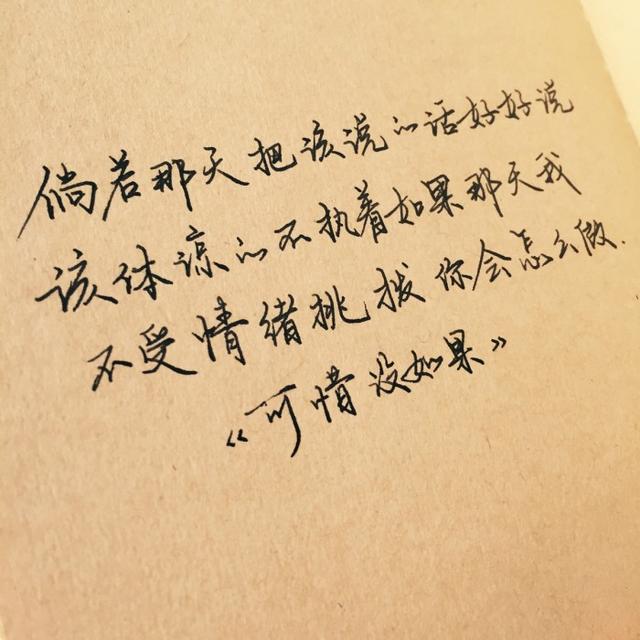 倘若那天把该说的话好好说
该体谅的不执着如果那天我
不受情绪挑拨你会怎么做.
《可惜没如果》